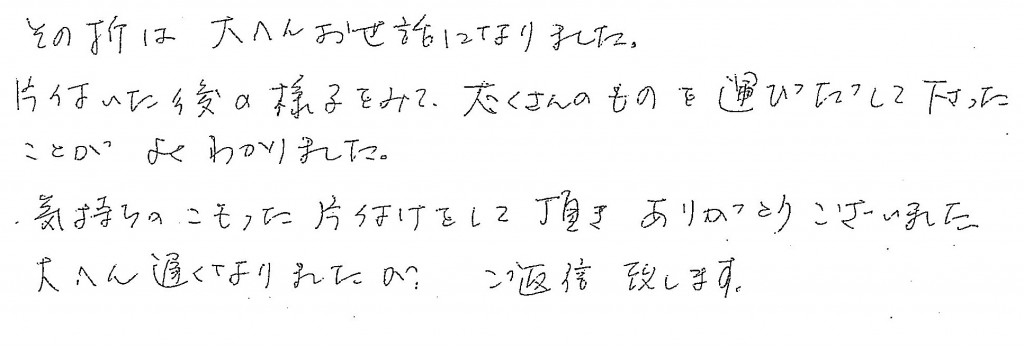 その折は 大へんお世話になりました。
片付いた後の様子をみて、たくさんのものを運びだして下さった
ことが よくわかりました。
気持ちのこもった片付けをして頂き ありがとうございました
大へん遅くなりましたが、 ご返信致します。